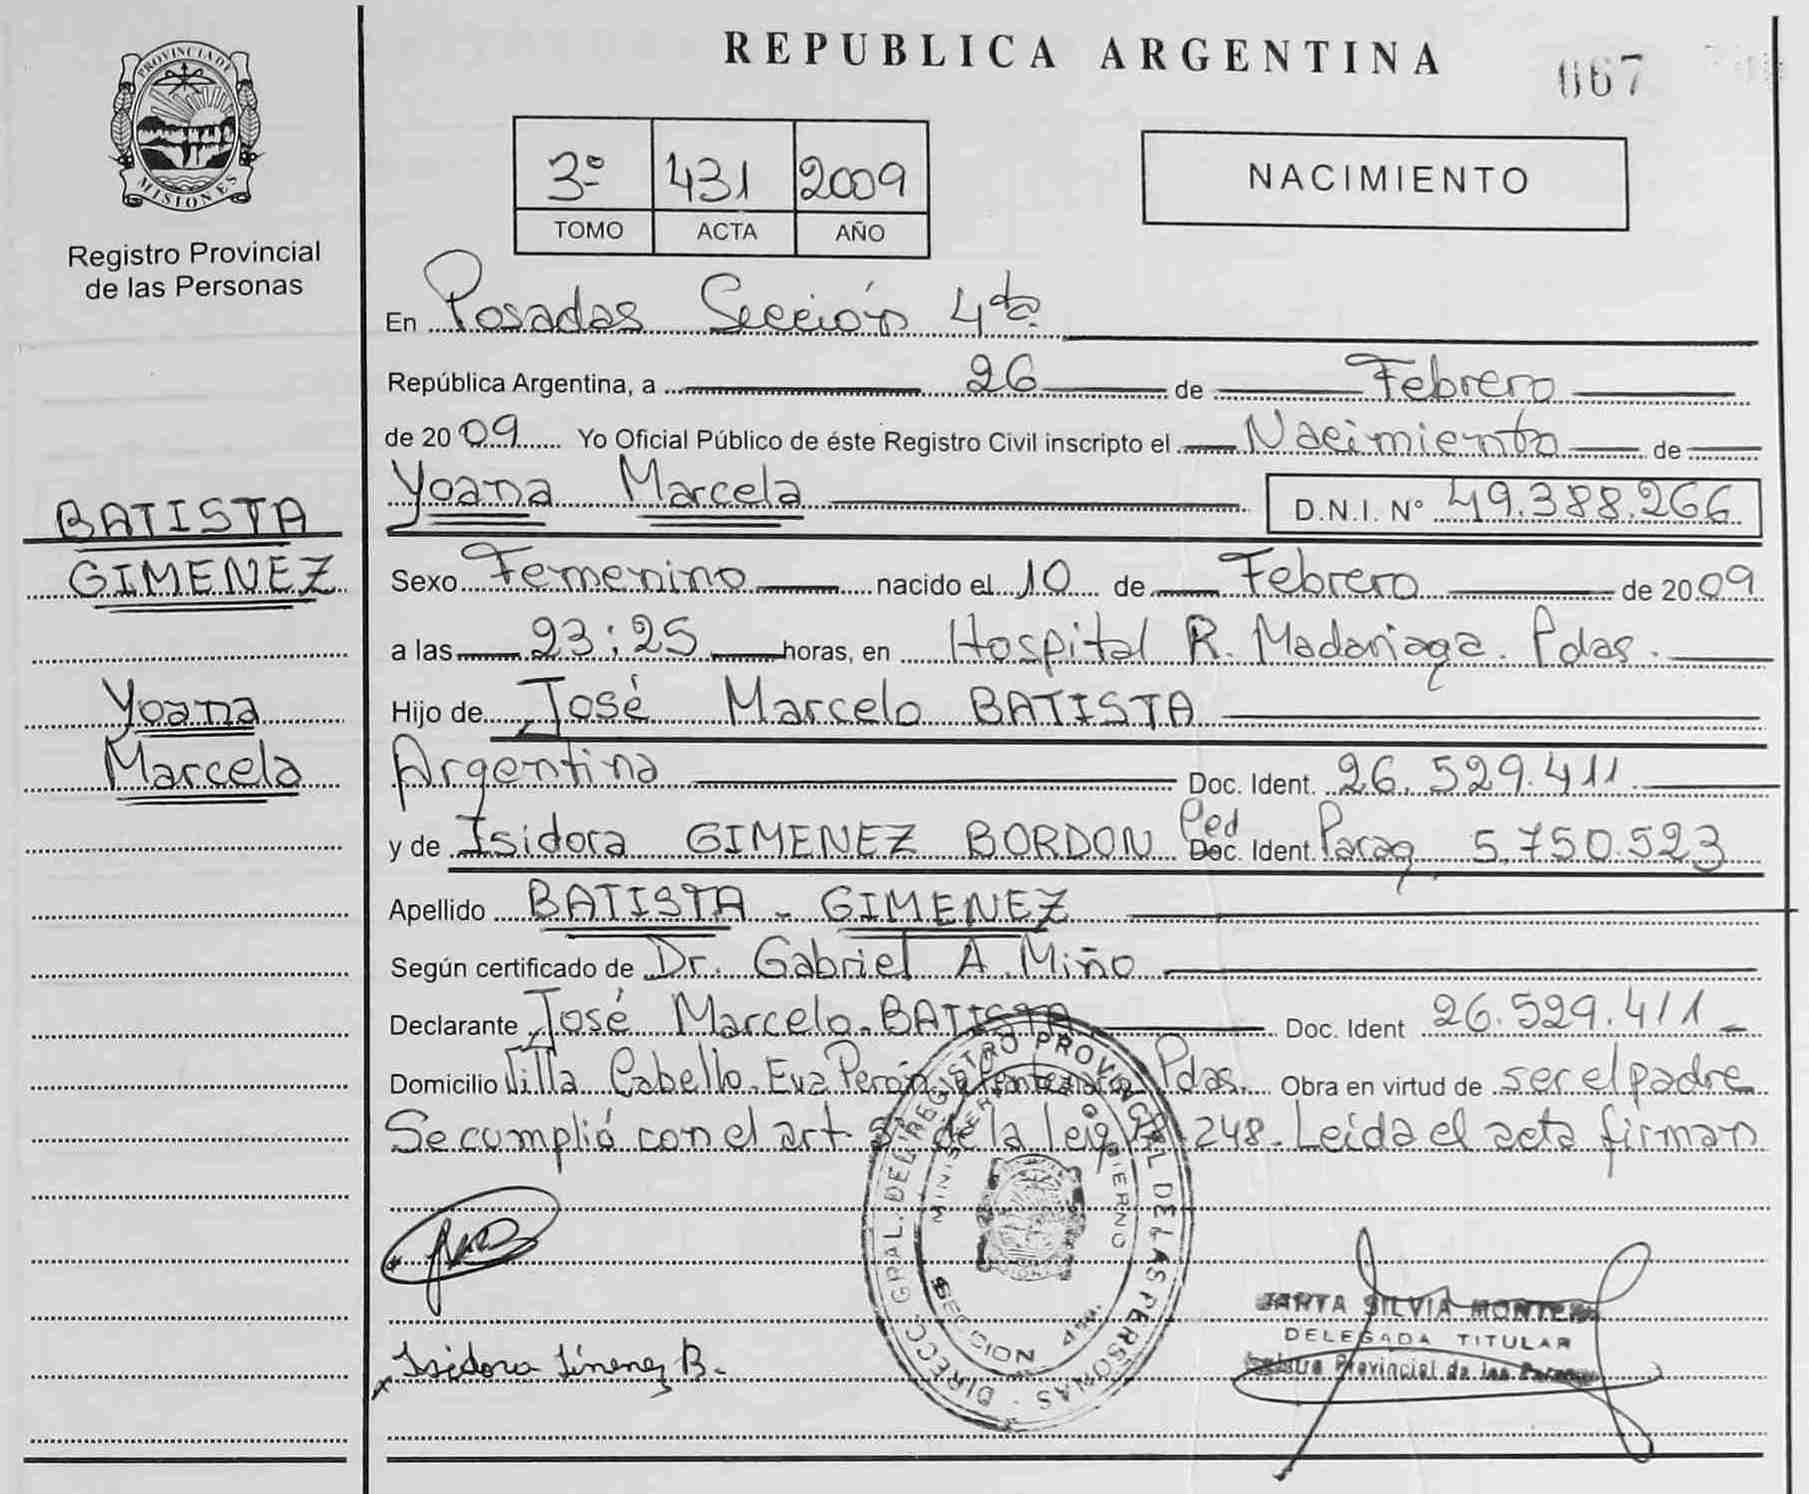 PROVINCIA DE
MISIONES
Registro Provincial
de las Personas
BATISTA
GIMENEZ
Yoana
Marcela
REPUBLICA ARGENTINA
067
3º 431 2009
TOMO ACTA AÑO
NACIMIENTO
En Posadas Sección 4ta.
República Argentina, a 26 de Febrero
de 2009 Yo Oficial Público de éste Registro Civil inscripto el Nacimiento de
Yoana Marcela D.N.I. Nº 49.388.266
Sexo Femenino nacido el 10 de Febrero de 2009
a las 23:25 horas, en Hospital R. Madariaga. Pdas.
Hijo de José Marcelo BATISTA
Argentina Doc. Ident. 26.529.411
y de Isidora GIMENEZ BORDON Ced Doc. Ident. Parag 5.750.523
Apellido BATISTA - GIMENEZ
Según certificado de Dr. Gabriel A. Miño
Declarante José Marcelo BATISTA Doc. Ident 26.529.411
Domicilio Villa Cabello. Eva Perón Pdas. Obra en virtud de ser el padre
Se cumplió con el art. de la ley 248. Leída el acta firman
DIRECC. GRAL. DEL REGISTRO PROVINCIAL DE LAS PERSONAS
MINISTERIO GOBIERNO
SECCION 4ta.
Isidora Jimenez B.
SILVIA
DELEGADA TITULAR
Provincial de las